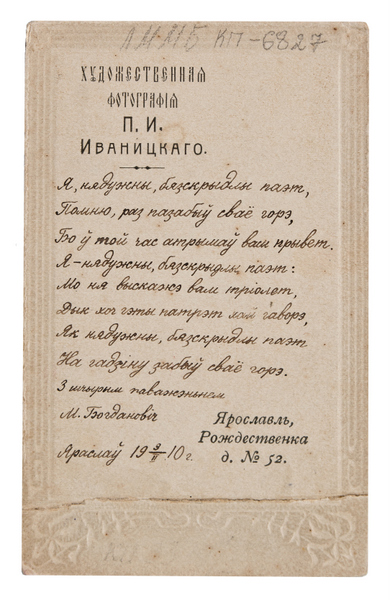 ЛММБ КП-6827
ХУДОЖЕСТВЕННАЯ
ФОТОГРАФІЯ
П. И.
ИВАНИЦКАГО.
Я, нядужны, бязскрыдлы паэт,
Помню, раз пазабыў сваё горэ,
Бо ў той час атрымаў вам прывет.
Я – нядужны, бязскрыдлы паэт:
Мо ня выскажэ вам тріолет,
Дык хоч гэты патрэт мой гаворэ,
Як нядужны, бязскрыдлы паэт
На гадзіну забыў сваё горэ.
З шчырым паважэньнем
М. Богдановіч
Ярославль,
Рождественка
д. № 52.
Яраслаў 19 9/II 10 г.
КП